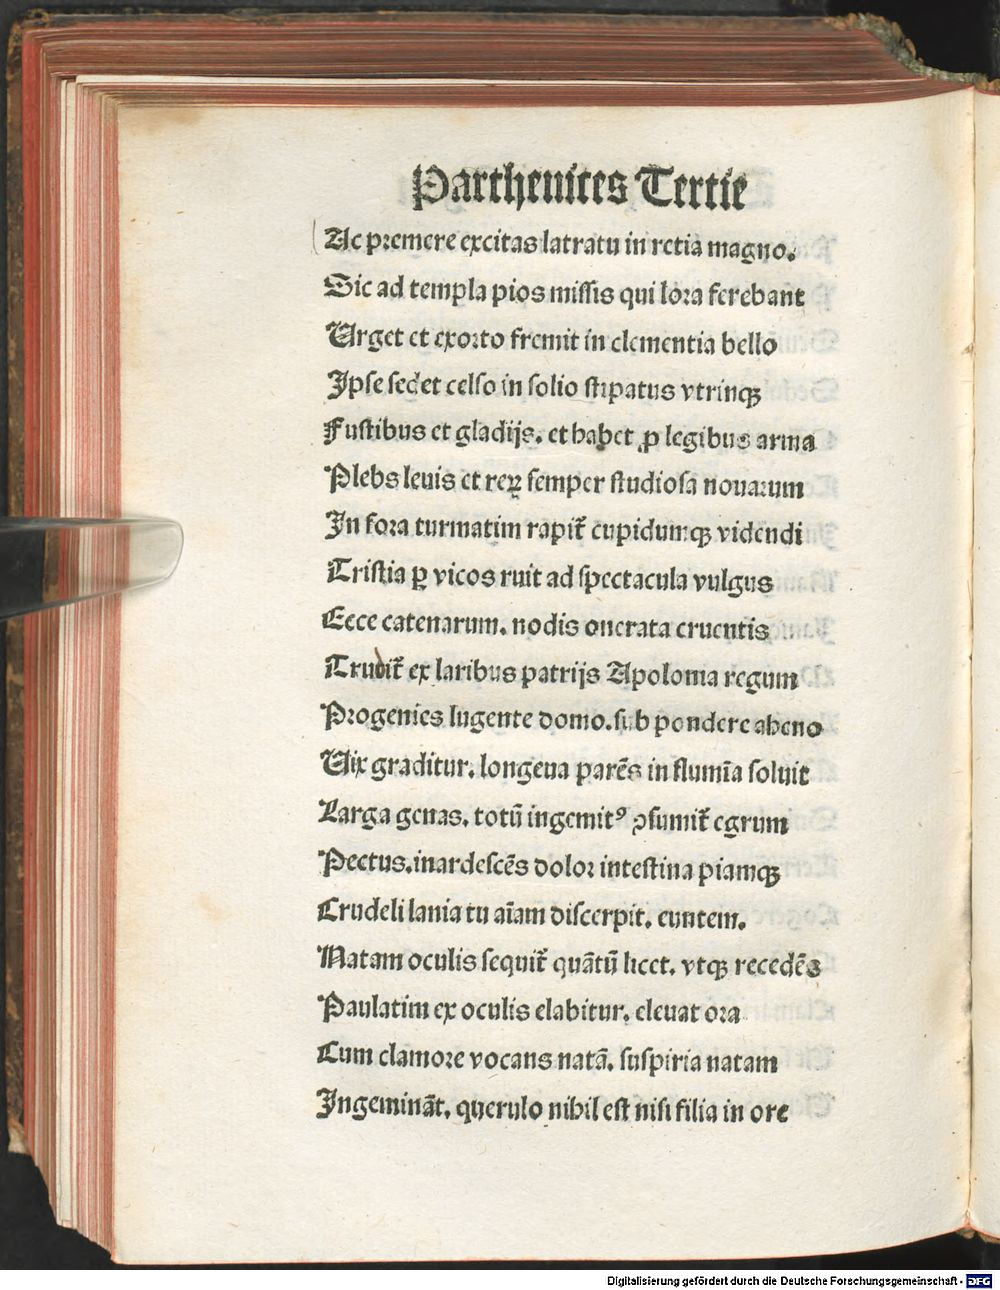 Parthenices Tertie
Ac premere excitas latratu in retia magno.
Sic ad templa pios missis qui lora ferebant
Urget et exorto fremit in clementia bello
Ipse sedet celso in solio stipatus vtrinqꝫ
Fustibus et gladijs. et habet ꝓ legibus arma
Plebs leuis et reꝝ semper studiosa nouarum
In fora turmatim rapit᷑ cupidumqꝫ videndi
Tristia ꝑ vicos ruit ad spectacula vulgus
Ecce catenarum. nodis onerata cruentis
Trudit᷑ ex laribus patrijs Apolonia regum
Progenies lugente domo. sub pondere aheno
Uix graditur. longeua parēs in flumīa soluit
Larga genas. totū ingemitꝰ ꝯsumit᷑ egrum
Pectus. inardescēs dolor intestina piamqꝫ
Crudeli lania tu aīam discerpit. euntem.
Natam oculis sequit᷑ quātū licet. vtqꝫ recedēs
Paulatim ex oculis elabitur. eleuat ora
Cum clamore vocans natā. suspiria natam
Ingemināt. querulo nihil est nisi filia in ore
Digitalisierung gefördert durch die Deutsche Forschungsgemeinschaft - DFG